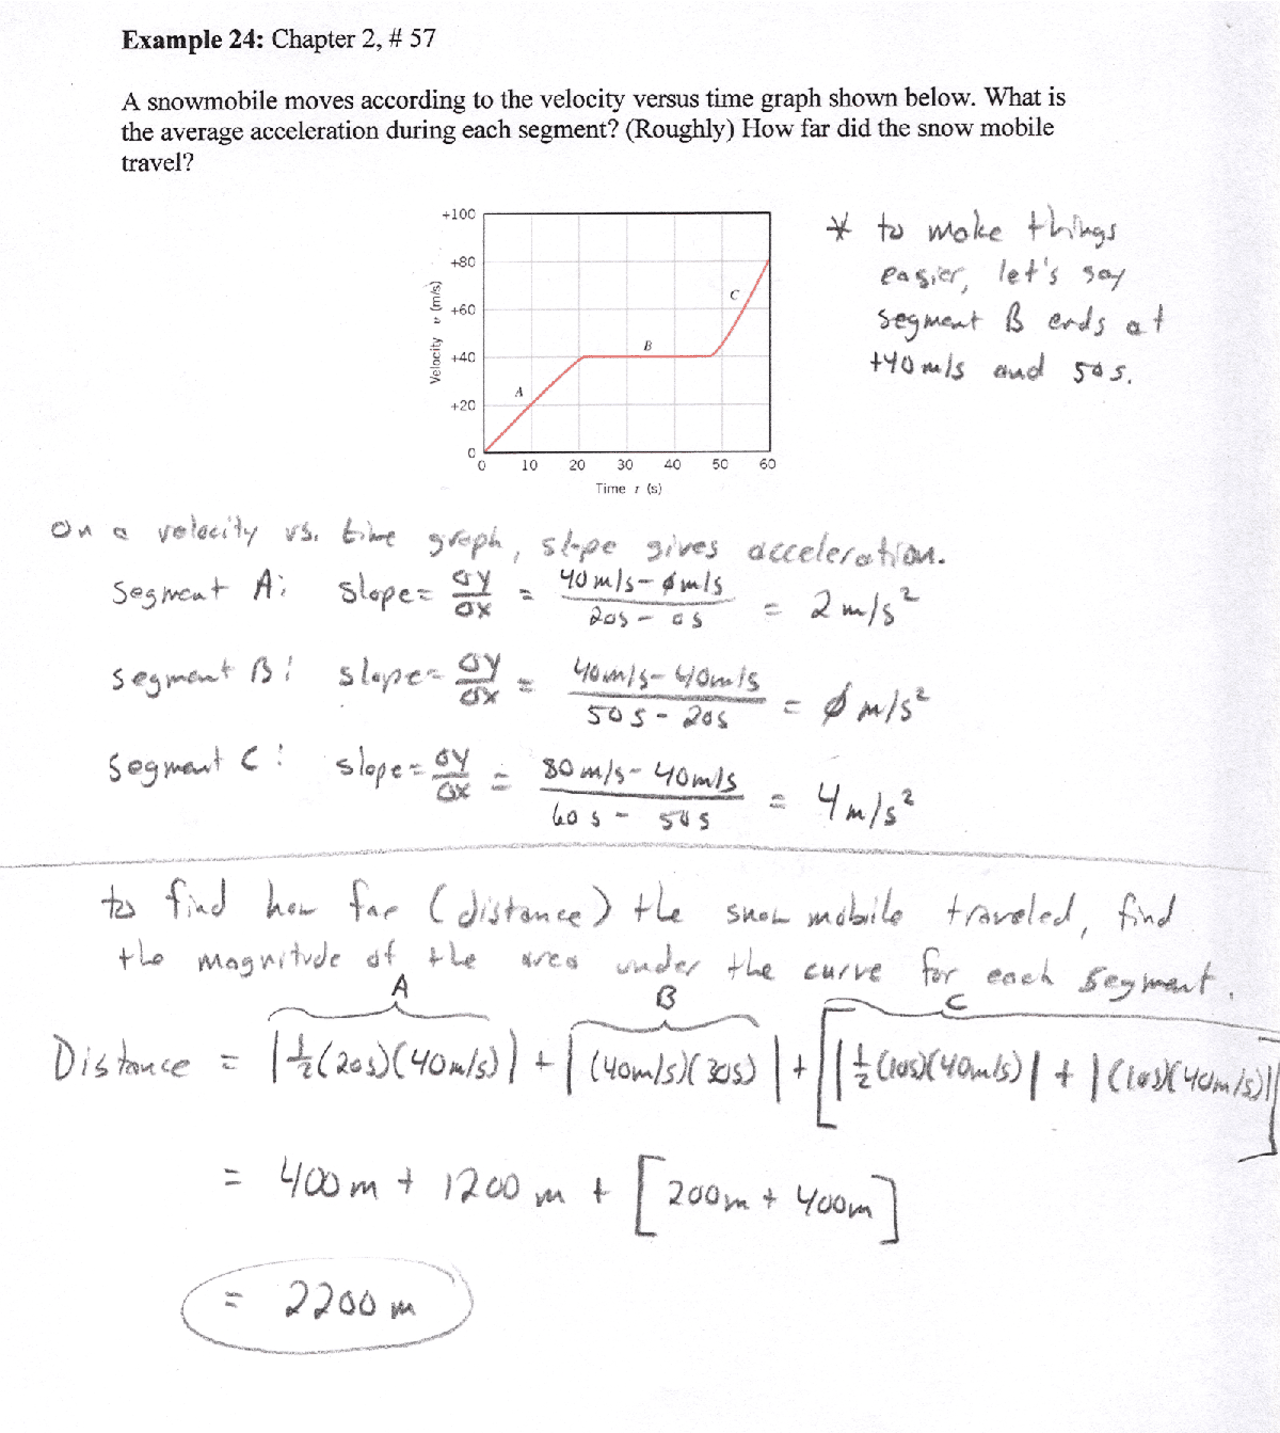 Example 24: Chapter 2, # 57
A snowmobile moves according to the velocity versus time graph shown below. What is
the average acceleration during each segment? (Roughly) How far did the snow mobile
travel?
+100
+80
+60
+40
+20
0
Velocity v (m/s)
A
B
C
0 10 20 30 40 50 60
Time t (s)
* to make things
easier, let's say
segment B ends at
+40 m/s and 50 s.
On a velocity vs. time graph, slope gives acceleration.
Segment A: slope = ΔY/ΔX = (40 m/s - 0 m/s)/(20s - 0s) = 2 m/s²
Segment B: slope = ΔY/ΔX = (40 m/s - 40 m/s)/(50s - 20s) = 0 m/s²
Segment C: slope = ΔY/ΔX = (80 m/s - 40 m/s)/(60s - 50s) = 4 m/s²
to find how far (distance) the snow mobile traveled, find
the magnitude of the area under the curve for each segment.
A B C
Distance = |½(20s)(40m/s)| + |(40m/s)(30s)| + [|½(10s)(40m/s)| + |(10s)(40m/s)|]
= 400 m + 1200 m + [200m + 400m]
= 2200 m